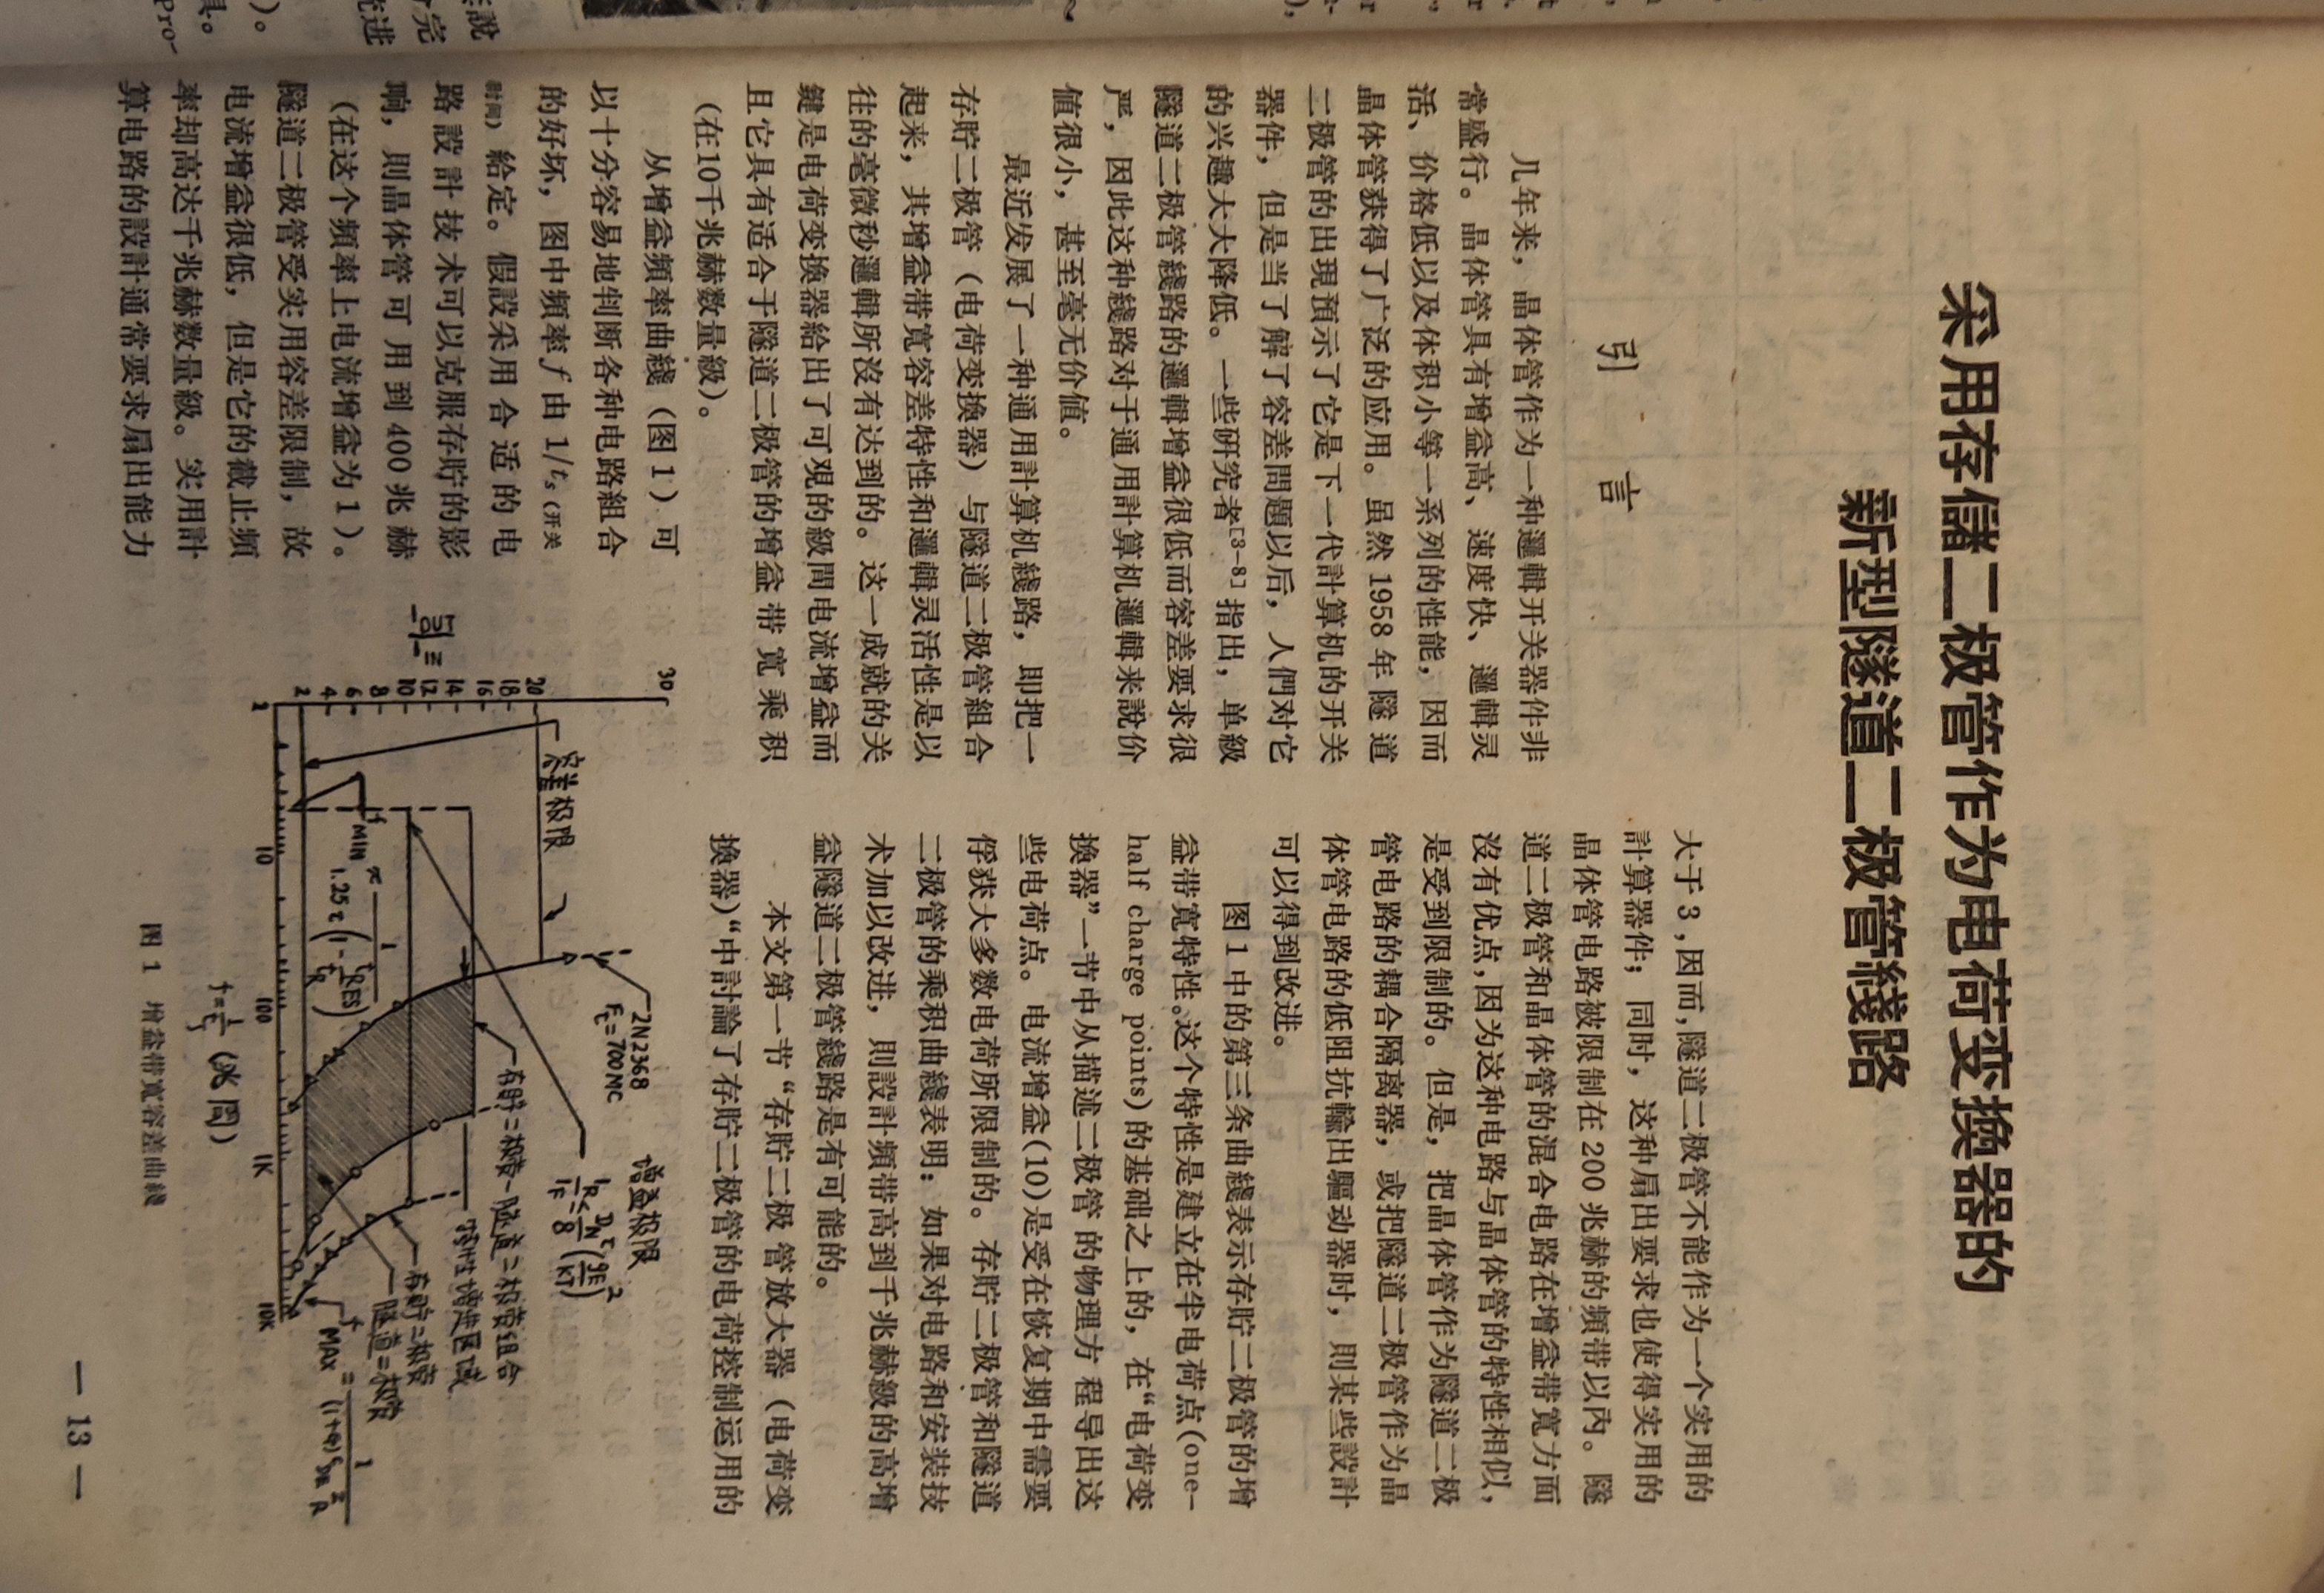 采用存儲二极管作为电荷变換器的
新型隧道二极管綫路
引 言
几年来，晶体管作为一种邏輯开关器件非
常盛行。晶体管具有增益高、速度快、邏輯灵
活、价格低以及体积小等一系列的性能，因而
晶体管获得了广泛的应用。虽然 1958 年 隧 道
二极管的出現預示了它是下一代計算机的开关
器件，但是当了解了容差問題以后，人們对它
的兴趣大大降低。一些研究者[3-8]指出，单級
隧道二极管綫路的邏輯增益很低而容差要求很
严，因此这种綫路对于通用計算机邏輯来說价
值很小，甚至毫无价值。
最近发展了一种通用計算机綫路，即把一
存貯二极管（电荷变換器）与隧道二极管組合
起来，其增益带宽容差特性和邏輯灵活性是以
往的毫微秒邏輯所沒有达到的。这一成就的关
鍵是电荷变換器給出了可观的級間电流增益而
且它具有适合于隧道二极管的增益 带 宽 乘 积
（在10千兆赫数量級）。
从增益頻率曲綫（图 1）可
以十分容易地判断各种电路組合
的好坏，图中頻率 f 由 1/ts (开关
时间) 給定。假設采用 合 适 的 电
路 設 計 技 术可以克服存貯的影
响，則晶体管 可 用 到 400 兆 赫
（在这个頻率上电流增益为 1）。
隧道二极管受实用容差限制，故
电流增益很低，但是它的截止頻
率却高达千兆赫数量級。实用計
算电路的設計通常要求扇出能力
30
20
18
16
14
12
10
8
6
4
2
10
100
1K
10K
容差极限
2N2368
Fc=700MC
增益极限
有貯二极管-隧道二极管組合
有貯二极管
隧道二极管
f=1/ts (兆周)
图 1 增益带宽容差曲綫
大于 3，因而，隧道二极管不能作为一个实用的
計算器件；同时，这种扇出要求也使得实用的
晶体管电路被限制在 200 兆赫的頻带以內。隧
道二极管和晶体管的混合电路在增益带宽方面
沒有优点，因为这种电路与晶体管的特性相似，
是受到限制的。但是，把晶体管作为隧道二极
管电路的耦合隔离器，或把隧道二极管作为晶
体管电路的低阻抗輸出驅动器时，則某些設計
可以得到改进。
图 1 中的第三条曲綫表示存貯二极管的增
益带宽特性。这个特性是建立在半电荷点(one-
half charge points) 的基础之上的，在“电荷变
換器”一节中从描述二极管 的物理方 程导出这
些电荷点。电流增益(10)是受在恢复期中需要
俘获大多数电荷所限制的。存貯二极管和隧道
二极管的乘积曲綫表明：如果对电路和安装技
术加以改进，則設計頻带高到千兆赫級的高增
益隧道二极管綫路是有可能的。
本文第一节“存貯二极 管放大器（电荷变
換器）“中討論了存貯二极管的电荷控制运用的
— 13 —